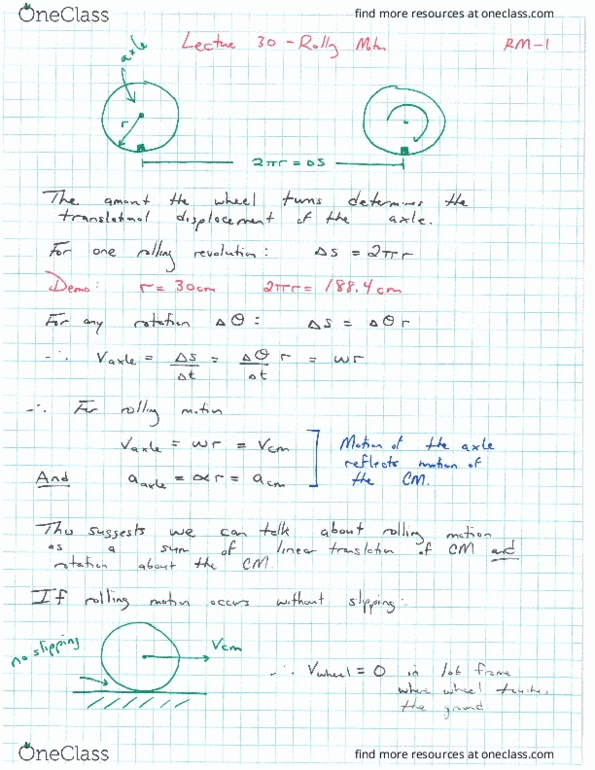 OneClass
find more resources at oneclass.com
Lecture 30 - Rolling Motion RM-1
axle
r
2πr = Δs
The amount the wheel turns determines the
translational displacement of the axle.
For one rolling revolution: Δs = 2πr
Demo: r = 30cm 2πr = 188.4 cm
For any rotation Δθ: Δs = Δθ r
∴ Vaxle = Δs/Δt = Δθ/Δt r = ωr
∴ For rolling motion
Vaxle = ωr = Vcm
And aaxle = αr = acm
Motion of the axle
reflects motion of
the CM.
This suggests we can talk about rolling motion
as a sum of linear translation of CM and
rotation about the CM.
If rolling motion occurs without slipping:
no slipping
Vcm
∴ Vwheel = 0 in lab frame
where wheel touches
the ground
OneClass
find more resources at oneclass.com